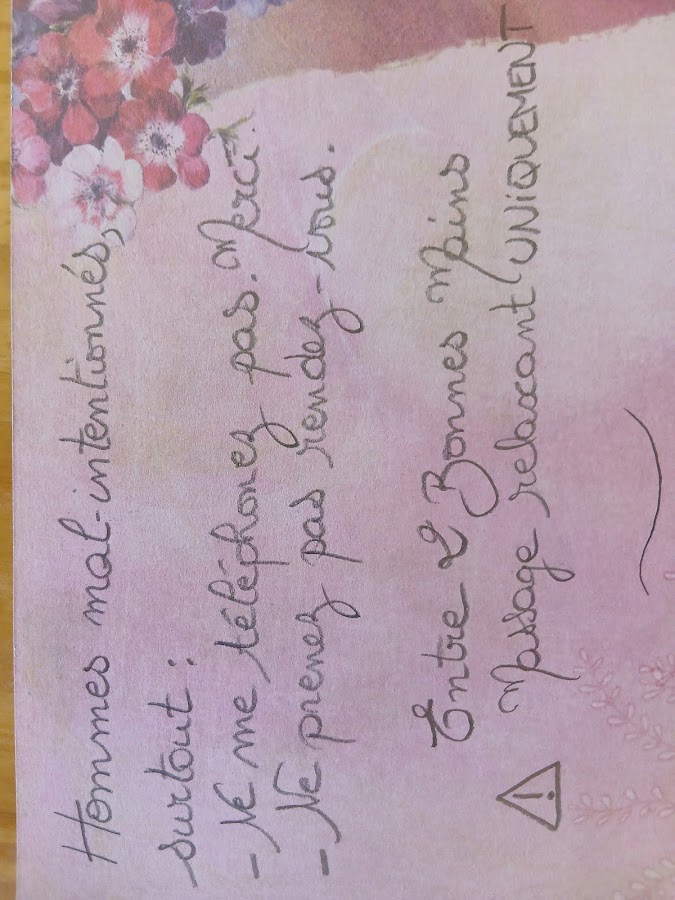 Hommes mal-intentionnés,
surtout :
- Ne me téléphonez pas. Merci.
- Ne prenez pas rendez-vous.
Entre 2 Bonnes Mains
⚠ Massage relaxant UNIQUEMENT